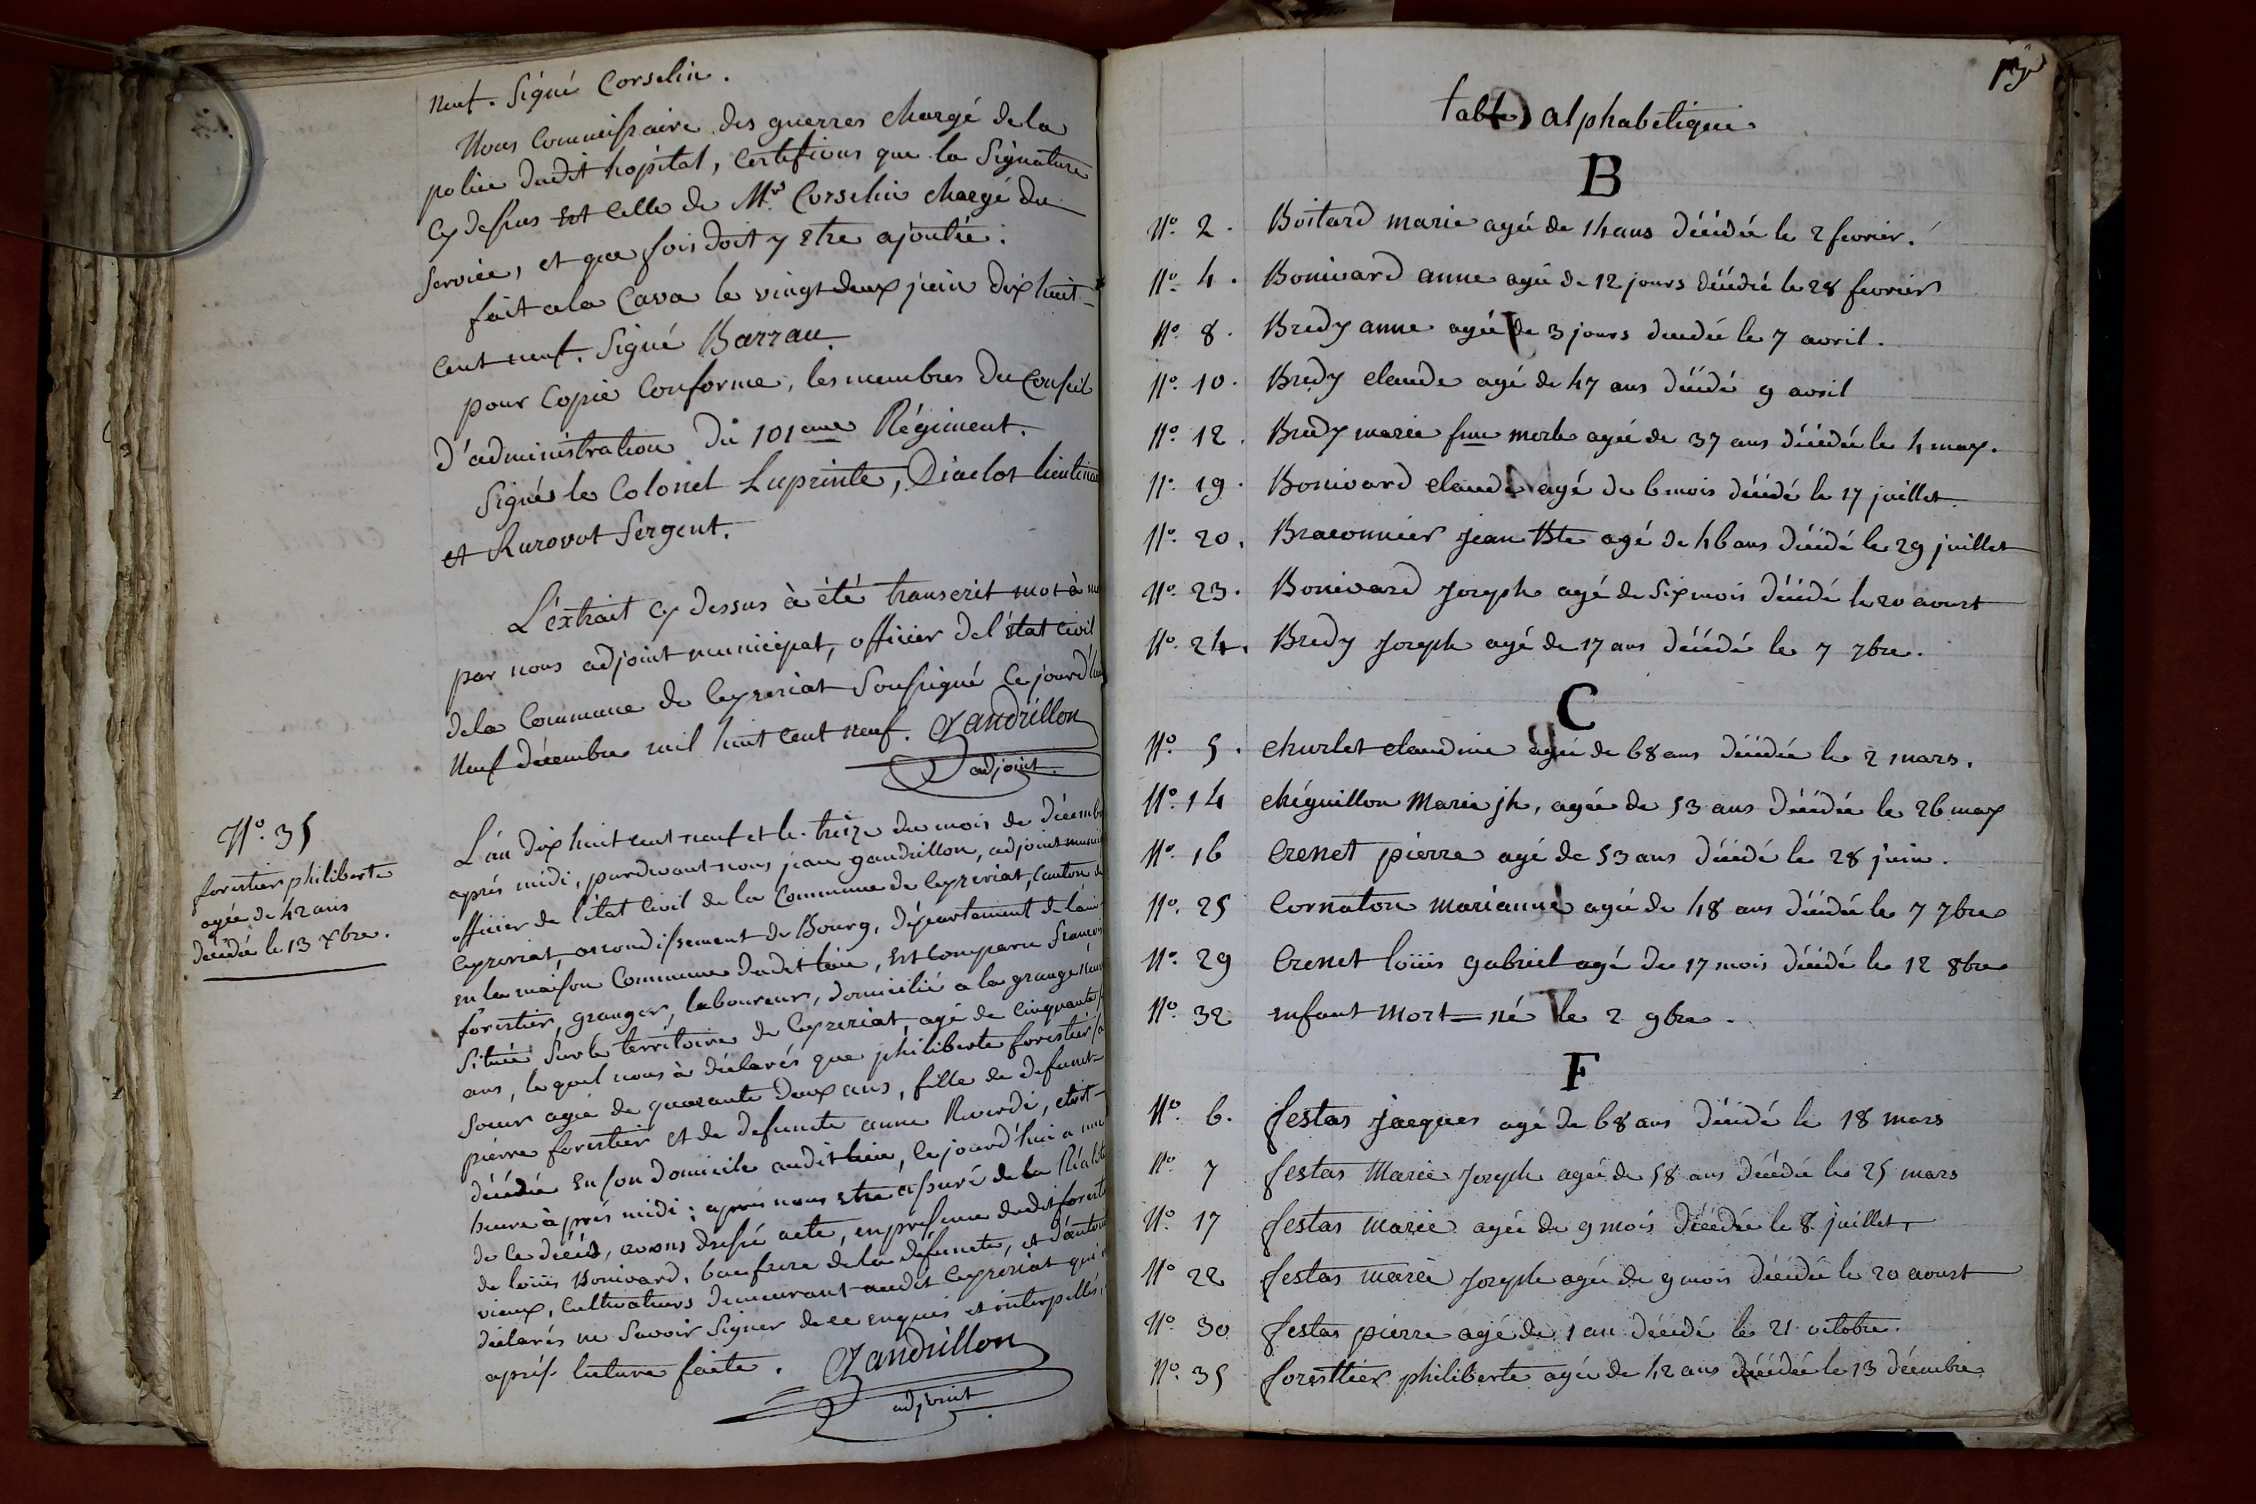 neuf. Signé Corselin.
Nous Commissaire des guerres chargé de la
police dudit hopital, Certifions que la Signature
Cy dessus Est Celle de Mr. Corselin chargé du
Service, et que fois doit y Etre ajoutée.
fait a la Cava le vingt deux juin dix huit
Cent neuf. Signé Barrau.
pour Copie Conforme, les membres du Conseil
d'administration du 101eme Régiment.
Signés le Colonel, Diaclot
et Sergent.
L'éxtrait cy dessus à été transcrit mot à
par nous adjoint municipal, officier de l'état Civil
de la Commune de Ceyzeriat Soussigné Ce jourd'hui
Neuf décembre mil huit Cent neuf. Gandrillon
adjoint.
N°. 35
forestier philiberte
agée de 42 ans
décédée le 13 Xbre.
L'an dix huit cent neuf et le treize du mois de Décembre
aprés midi, pardevant nous jean gandrillon, adjoint
officier de l'état Civil de la Commune de Ceyzeriat, Canton de
Ceyzeriat, arrondissement de Bourg, département de l'ain
en la maison Commune dudit lieu, Est Comparu françois
forestier, granger, laboureur, domicilié a la grange
Située Sur le territoire de Ceyzeriat, agé de Cinquante
ans, lequel nous à déclarés que philiberte forestier Sa
Soeur agée de quarante deux ans, fille de defunct
pierre forestier et de defuncte anne, etoit
décédée En son domicile audit lieu, Ce jourd'hui a une
heure àprés midi; aprés nous Etre assuré de la Réalité
de Ce décés, avons dressé acte, en presence dudit forestier
de loüis Bonivard, baufrere de la défuncte, et d'antoine
vieux, Cultivateurs demeurant audit Ceyzeriat qui
déclarés ne Savoir Signer de ce enquis et interpellés,
aprés lecture faite. Gandrillon
adjoint
table alphabetique
B
N°. 2. Boitard marie agée de 14 ans décédée le 2 fevrier.
N°. 4. Bonivard anne agée de 12 jours décédée le 28 fevrier
N°. 8. Bredy anne agée de 3 jours decedée le 7 avril.
N°. 10. Bredy claude agé de 47 ans décédé 9 avril
N°. 12. Bredy marie fme morle agée de 37 ans décédée le 4 may.
N°. 19. Bonivard claude agé de 6 mois décédé le 17 juillet.
N°. 20. Braconnier jean Bte agé de 46 ans décédé le 29 juillet
N°. 23. Bonivard Joseph agé de Six mois décédé le 20 aoust
N°. 24. Bredy Joseph agé de 17 ans décédé le 7 7bre.
C
N°. 5. churlet claudine agée de 68 ans décédée le 2 mars.
N°. 14 chéguillon Marie jh, agée de 53 ans décédée le 26 may
N°. 16 Crenet pierre agé de 53 ans décédé le 28 juin.
N°. 25 Cornaton marianne agée de 48 ans décédée le 7 7bre
N°. 29 Crenet loüis gabriel agé de 17 mois décédé le 12 8bre
N°. 32 enfant Mort=né le 2 9bre.
F
N°. 6. festas jacques agé de 68 ans décédé le 18 mars
N°. 7 festas Marie Joseph agée de 58 ans décédée le 25 mars
N°. 17 festas marie agée de 9 mois décédée le 8 juillet.
N°. 22 festas marie Joseph agée de 9 mois décédée le 20 aoust
N°. 30 festas pierre agé de 1 an décédé le 21 octobre.
N°. 35 foresttier philiberte agée de 42 ans décédée le 13 décembre